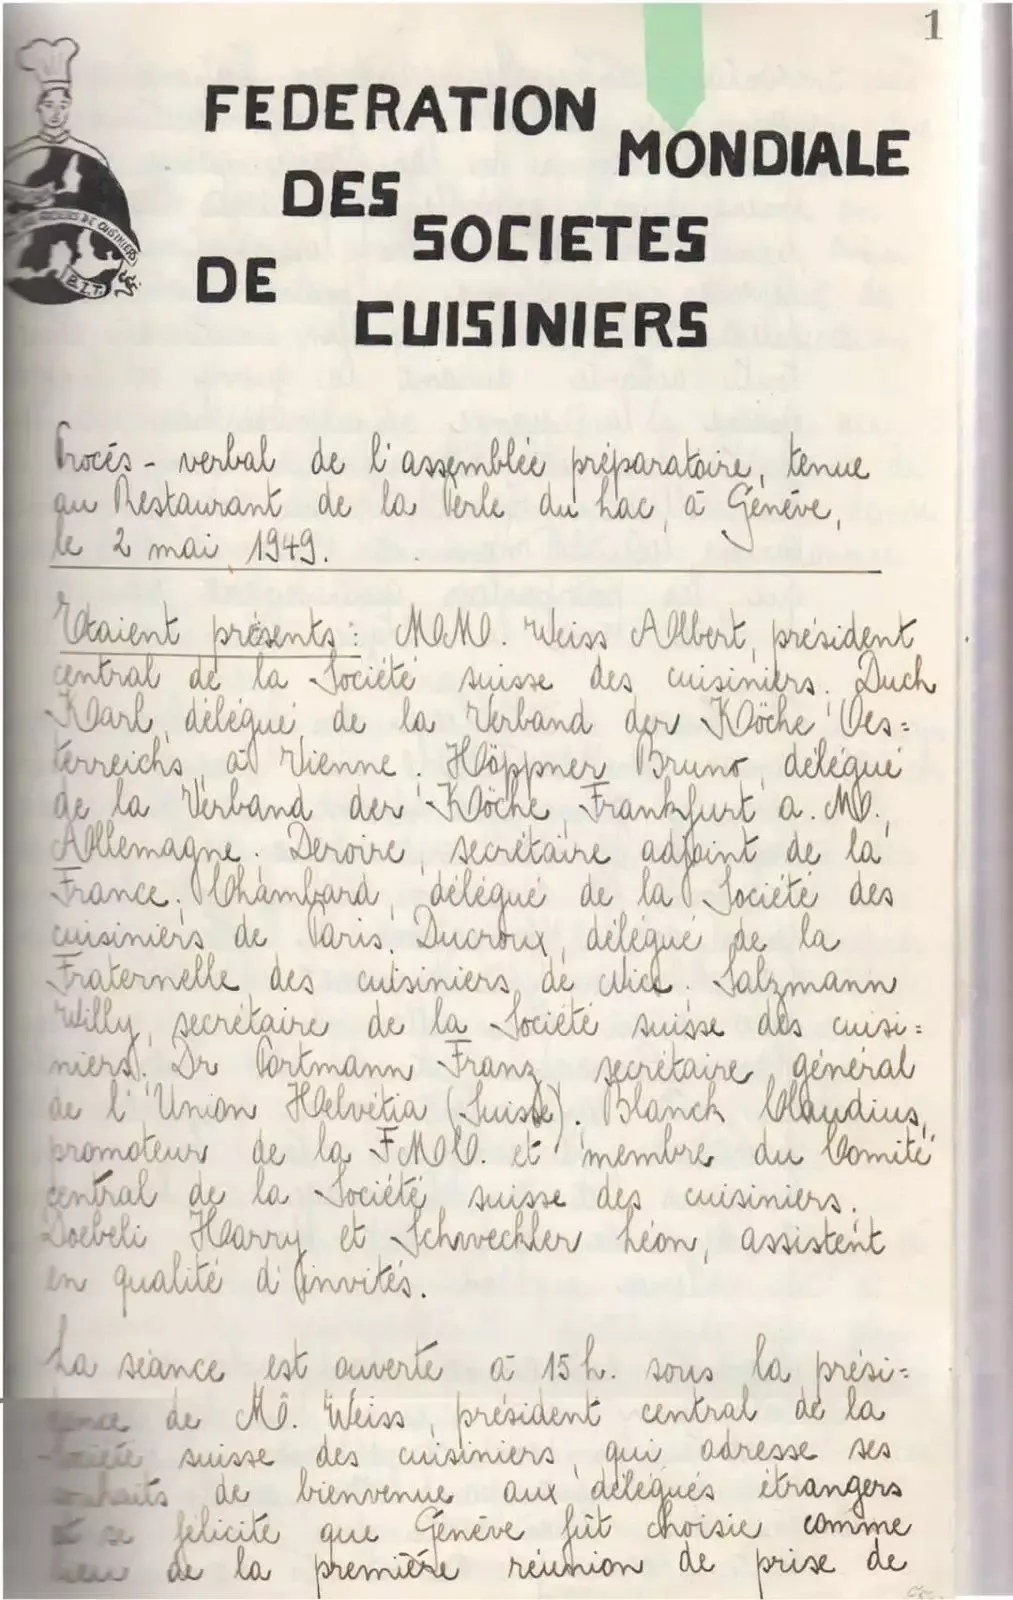 1
FEDERATION
MONDIALE
DES
SOCIETES
DE
CUISINIERS
DE CUISINIERS
B.I.T.
Procés - verbal de l'assemblée préparatoire, tenue
au Restaurant de la Perle du Lac, à Genéve,
le 2 mai 1949.
Etaient présents: MM. Weiss Albert, président
central de la Société suisse des cuisiniers. Duch
Karl, délégué de la Verband der Köche Oes=
terreichs, à Vienne. Höppner Bruno, délégué
de la Verband der Köche, Frankfurt a. M.,
Allemagne. Deroire, secrétaire adjoint de la
France. Chambard, délégué de la Société des
cuisiniers de Paris. Ducroux, délégué de la
Fraternelle des cuisiniers de Nice. Salzmann
Willy, secrétaire de la Société suisse des cuisi=
niers. Dr Portmann Franz secrétaire général
de l'Union Helvétia (Suisse). Blanck Claudius,
promoteur de la FMC. et membre du Comité
central de la Société suisse des cuisiniers.
Doebeli Harry et Schweckler Léon, assistent
en qualité d'invités.
La séance est ouverte à 15 h. sous la prési=
dence de M. Weiss, président central de la
Société suisse des cuisiniers, qui adresse ses
souhaits de bienvenue aux délégués étrangers
et se félicite que Genéve fût choisie comme
lieu de la premiére réunion de prise de